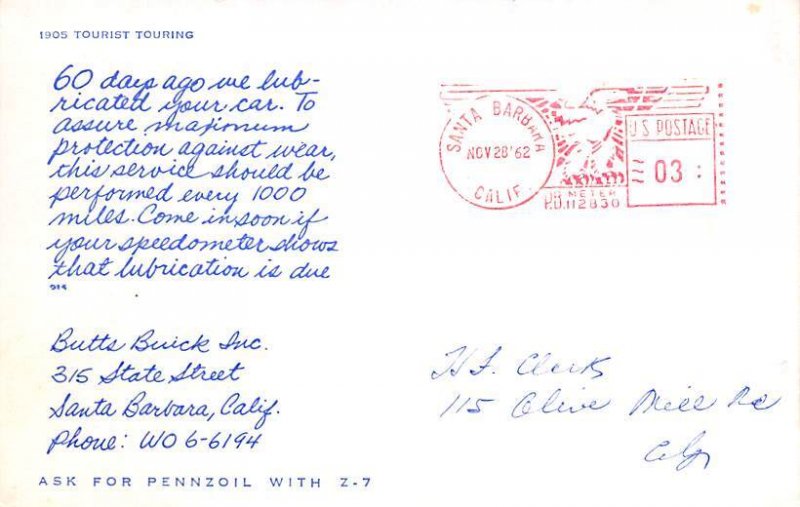 1905 TOURIST TOURING
60 days ago we lub-
ricated your car. To
assure maximum
protection against wear,
this service should be
performed every 1000
miles. Come in soon if
your speedometer shows
that lubrication is due
914
Butts Buick Inc.
315 State Street
Santa Barbara, Calif.
Phone: WO 6-6194
ASK FOR PENNZOIL WITH Z-7
SANTA BARBARA
NOV 28 '62
CALIF.
U.S. POSTAGE
03
P.B. METER
112830
115 Olive Mill Rd
City